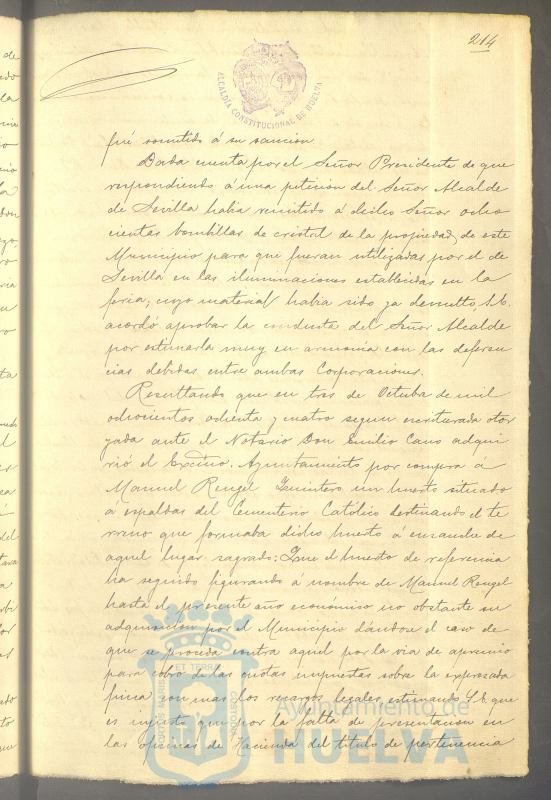 214
ALCALDÍA CONSTITUCIONAL DE HUELVA
fué somitido á su sancion.
Dada cuenta por el Señor Presidente de que
respondiendo á una peticion del Señor Alcalde
de Sevilla habia remitido á dicho Señor ocho
cientas bombillas de cristal de la propiedad de este
Municipio para que fueran utilizadas por el de
Sevilla en las iluminaciones establecidas en la
feria; cuyo material habia sido ya devuelto, S.E.
acordó aprobar la conducta del Señor Alcalde
por estimarla muy en armonía con las deferen
cias debidas entre ambas Corporaciones.
Resultando que en tres de Octubre de mil
ochocientos ochenta y cuatro segun escritura otor
gada ante el Notario Don Emilio Cano adqui
rió el Excmo. Ayuntamiento por compra á
Manuel Rengel Quintero un huerto situado
á espaldas del Cementerio Católico destinando el te
rreno que formaba dicho huerto á ensanche de
aquel lugar sagrado: Que el huerto de referencia
ha seguido figurando á nombre de Manuel Rengel
hasta el presente año económico no obstante su
adquisicion por el Municipio dándose el caso de
que se proceda contra aquel por la via de apremio
para cobro de las cuotas impuestas sobre la expresada
finca con mas los recargos legales estimando S.E. que
es injusto que por la falta de presentacion en
las oficinas de Hacienda del título de pertenencia
PORTUS MARIS
ET TERRAE
CUSTODIA
Ayuntamiento de
HUELVA